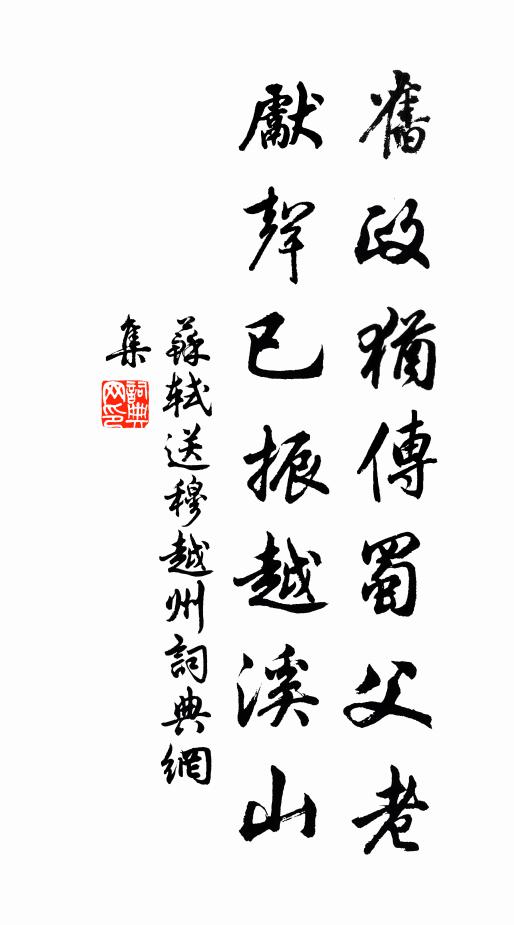 舊政猶傳蜀父老
獻聲已振越溪山
蘇軾送穆越州詞典網
集
詞典
网印